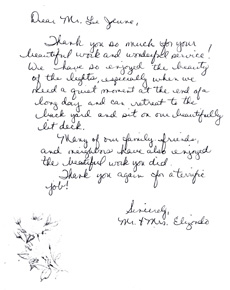 Dear Mr. Le Jeune,
Thank you so much for your
beautiful work and wonderful service!
We have so enjoyed the beauty
of the lights, especially when we
need a quiet moment at the end of a
long day and can retreat to the
back yard and sit on our beautifully
lit deck.
Many of our family, friends,
and neighbors have also enjoyed
the beautiful work you did.
Thank you again for a terrific
job!
Sincerely,
Mr. & Mrs. Elizondo